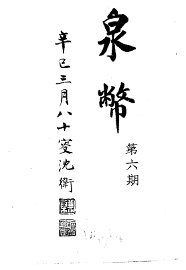 泉幣
第六期
辛巳三月八十叟沈衛